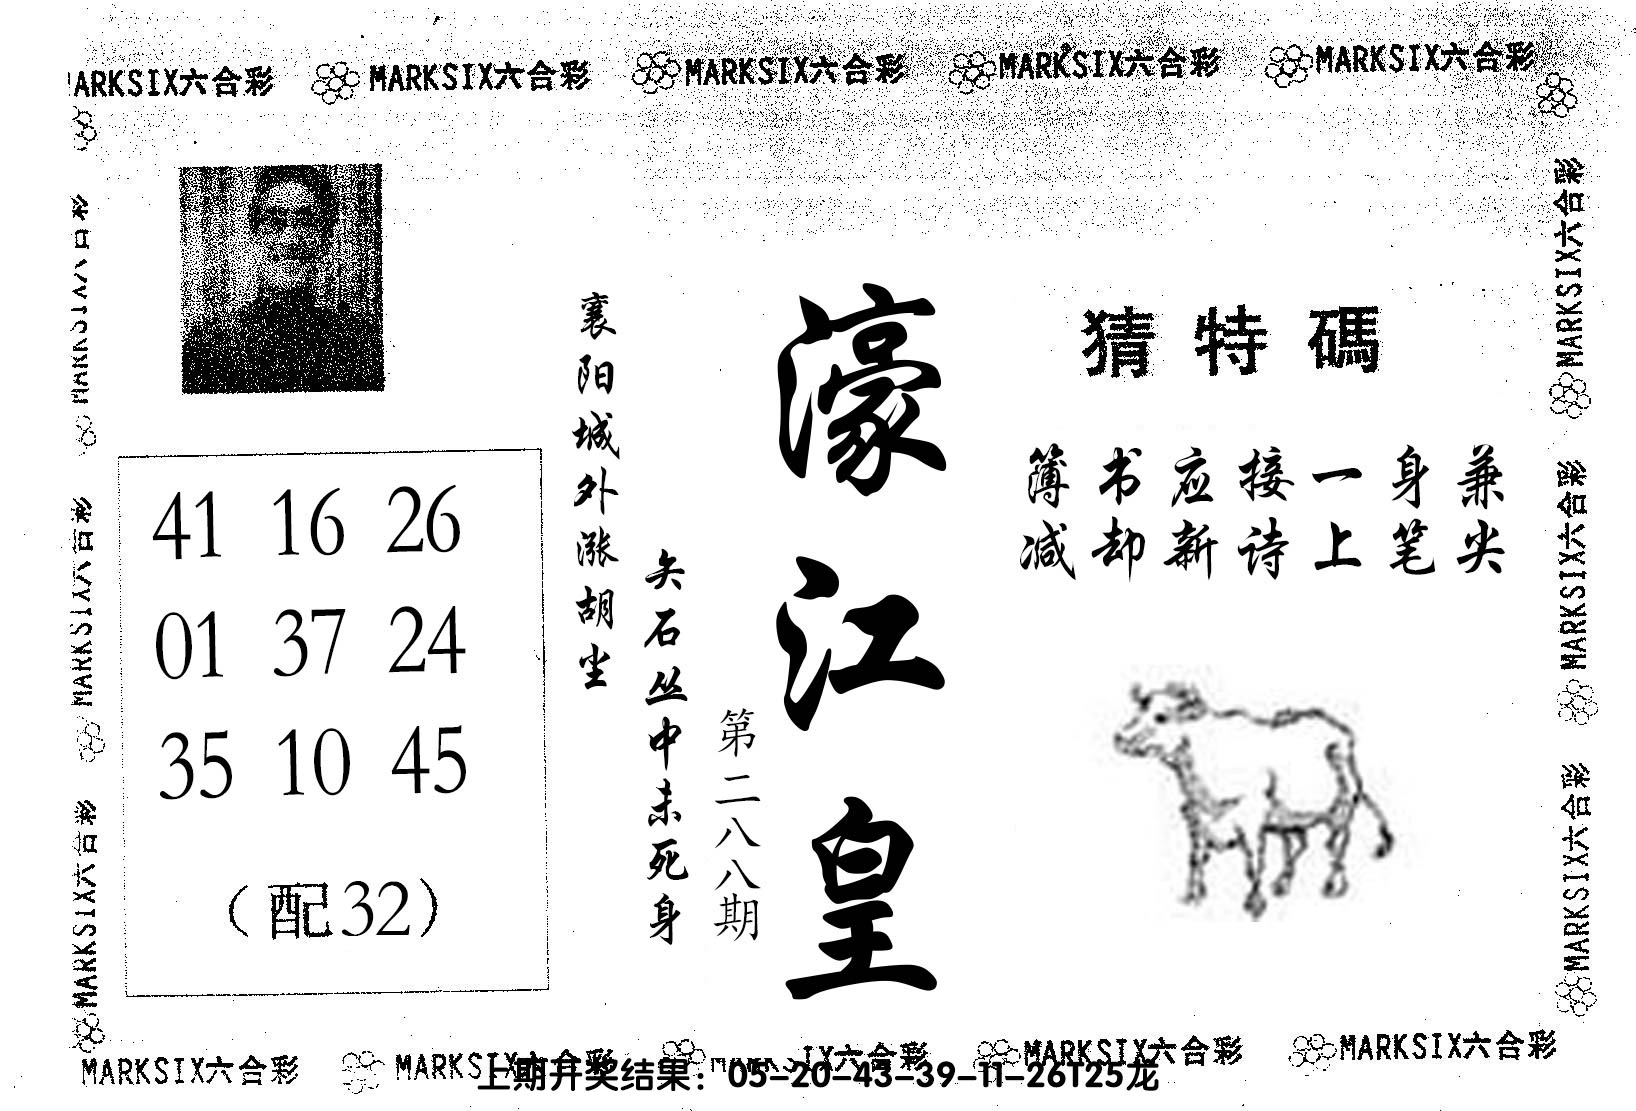 MARKSIX六合彩 MARKSIX六合彩 MARKSIX六合彩 MARKSIX六合彩 MARKSIX六合彩
MARKSIX六合彩
MARKSIX六合彩
MARKSIX六合彩
41 16 26
01 37 24
35 10 45
（配32）
襄阳城外涨胡尘
矢石丛中未死身
第二八八期
濠江皇
猜特碼
簿书应接一身兼
减却新诗上笔尖
MARKSIX六合彩
MARKSIX六合彩
MARKSIX六合彩
MARKSIX六合彩 MARKSIX六合彩 MARKSIX六合彩 MARKSIX六合彩 MARKSIX六合彩
上期开奖结果：05-20-43-39-11-26T25龙